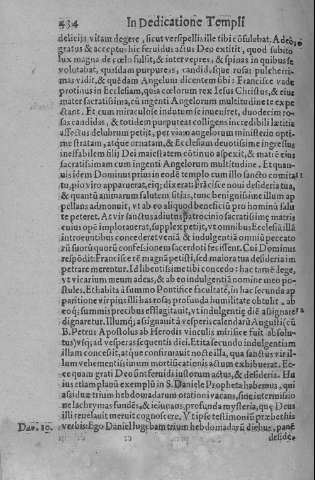 434 In Dedicatione Templi
delicijs vitam degere, sicut verspellis ille tibi cōsulebat. Adeò
gratus & acceptus hic feruidus actus Deo extitit, quod subito
lux magna de cœlo fulsit, & inter vepres, & spinas in quibus se
volutabat, quasdam purpureas, candidasque rosas pulcherri-
mas vidit, & quēdam Angelum dicentem sibi: Francisce vade
protinus in Ecclesiam, qua cœlorum rex Iesus Christus, & eius
mater sacratissima, cū ingenti Angelorum multitudine te expe
ctant. Et cum miraculosè indutum se inuenisset, duodecim ro-
sas candidas, & totidem purpureas colligens incredibili lætitiæ
affectus delubrum petijt, per viam angelorum ministerio opti-
mè stratam, atque ornatam, & Ecclesiam deuotissimè ingressus
ineffabilem filij Dei maiestatem cōtinuo aspexit, & matrē eius
sacratissimam cum ingenti Angelorum multitudine. Et quan-
uis idem Dominus prius in eodē templo cum illo sancto comita
tu, pio viro apparuerat, eiq; dixerat: Frācisce noui desideria tua,
& quantū animarum salutem sitias, tunc benignissimè illum ap
pellans admonuit, vt ab eo aliquod beneficiū pro hominū salu
te peteret. At vir sanctus adiutus patrocinio sacratissimæ matris
cuius opē implorauerat, supplex petijt, vt omnibus Ecclesiā illā
introeuntibus concederet veniā & indulgentiā omniū peccato
rū suorū quorū confessionem sacerdoti fecissent. Cui Dominus
respōdit: Francisce rē magnā petisti, sed maiora tua desideria im
petrare merentur. Id libentissimè tibi concedo: hac tamē lege,
vt vicarium meum adeas, & ab eo indulgentiā nomine meo po-
stules. Et habita à summo Pontifice facultatē, in hac secunda ap
paritione virginis illi has rosas profunda humilitate obtulit. ab
eoq; summis precibus efflagitauit, vt indulgentię diē assignare
dignaretur. Illumq; assignauit à vesperis calendarū Augusti (cū
B. Petrus Apostolus ab Herodis vinculis mirificè fuit absolu-
tus) vsq; ad vesperas sequentis diei. Et ita secundo indulgentiam
illam concessit, atque confirmauit nocte illa, qua sanctus vir il-
lum vehementissimum mortificationis actum exhibuerat. Ec-
ce quam grati Deo sint feruidi iustorum actus, & desideria. Hu
ius etiam planū exemplū in S. Daniele Propheta habemus, qui
assiduæ trium hebdomadarum orationi vacans, sine intermissio
ne lachrymas fundēs, & ieiunans, profunda mysteria, quæ Deus
illi reuelauit meruit cognoscere. Vt ipse testimoniū præbet his
Dan. 10. verbis: Ego Daniel lugebam trium hebdomadarū diebus, panē
deside-